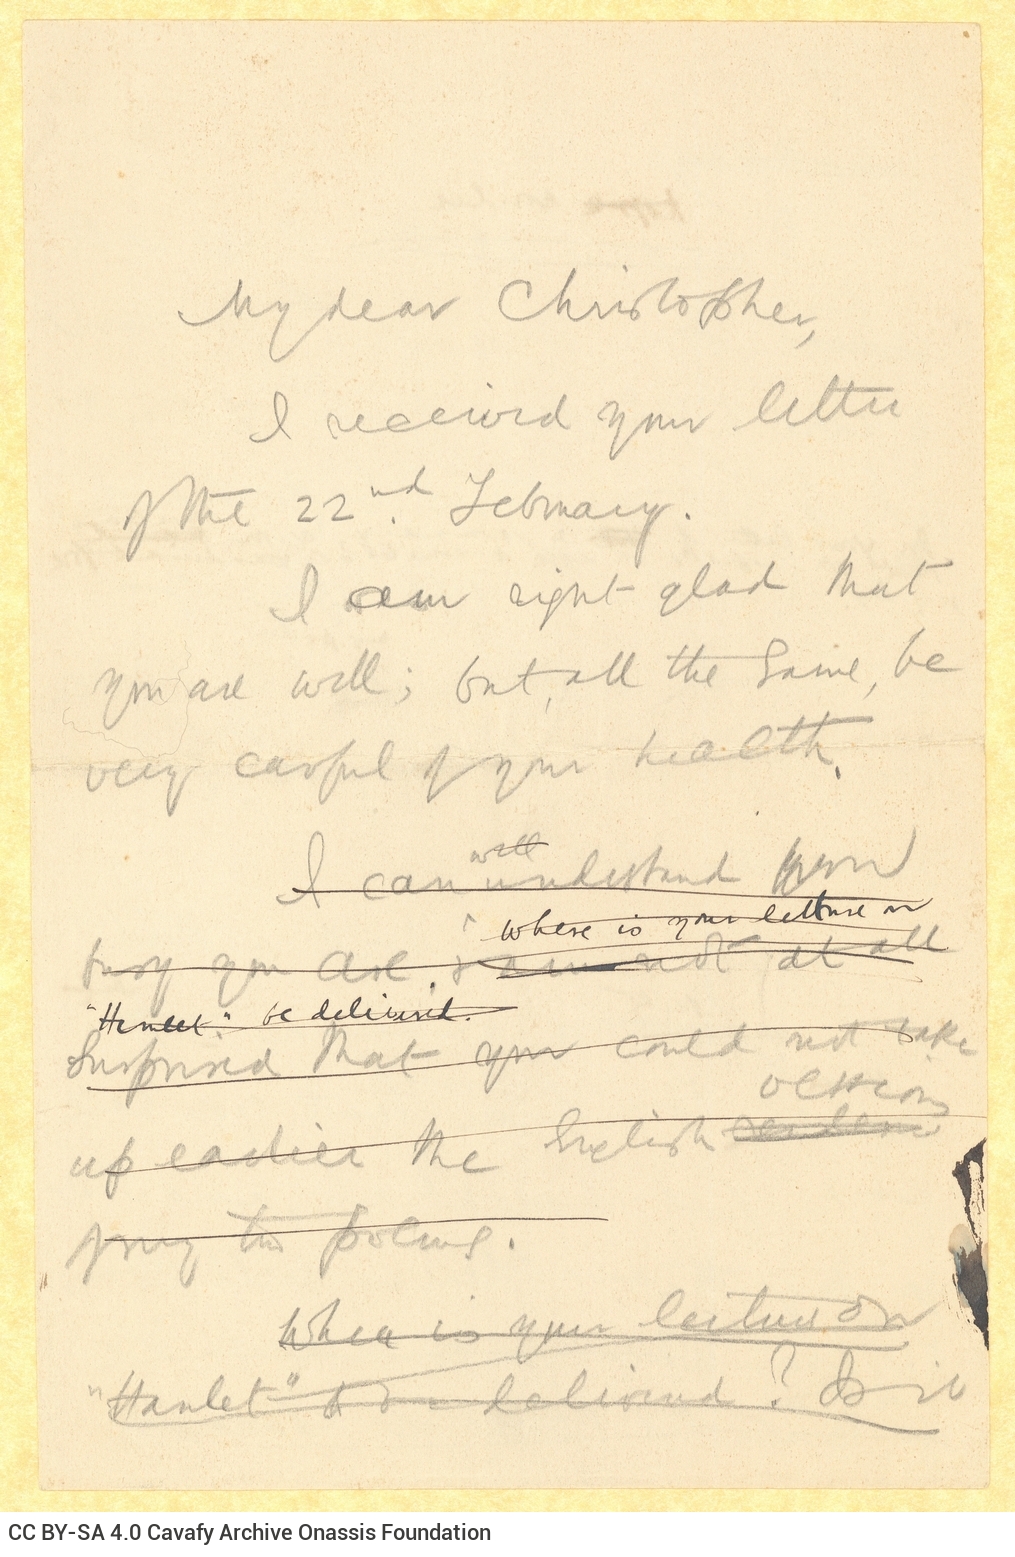 My dear Christopher,
I received your letter
of the 22nd. February.
I am right glad that
you are well; but, all the same, be
very careful of your health.
well
I can understand how
Where is your lecture on
busy you are & am not at all
"Hamlet" be delivered.
surprised that you could not take
version
up earlier the English
of my two poems.
When is your lecture on
"Hamlet" to be delivered? Is it
CC BY-SA 4.0 Cavafy Archive Onassis Foundation